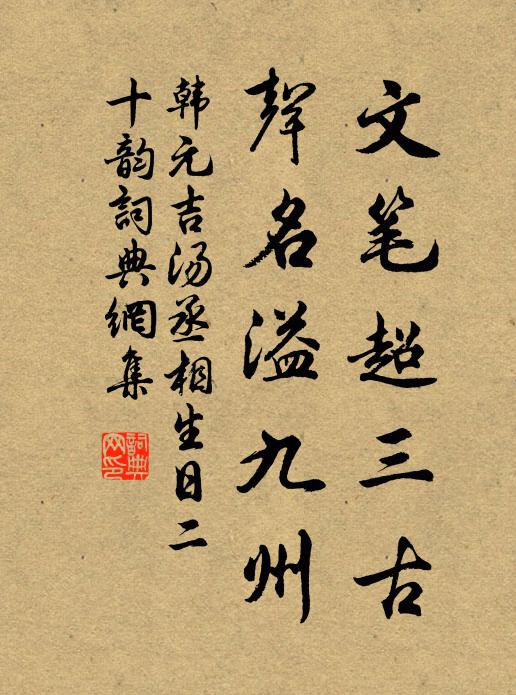 文笔超三古
声名溢九州
韩元吉汤丞相生日二
十韵詞典網集
詞典网印